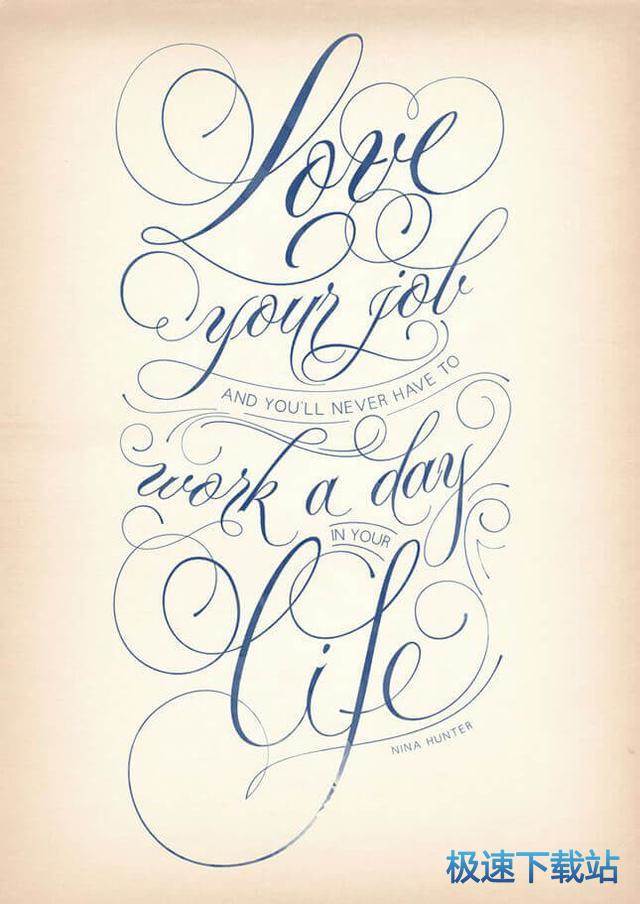 Love
your job
AND YOU'LL NEVER HAVE TO
work a day
IN YOUR
life
NINA HUNTER
极速下载站